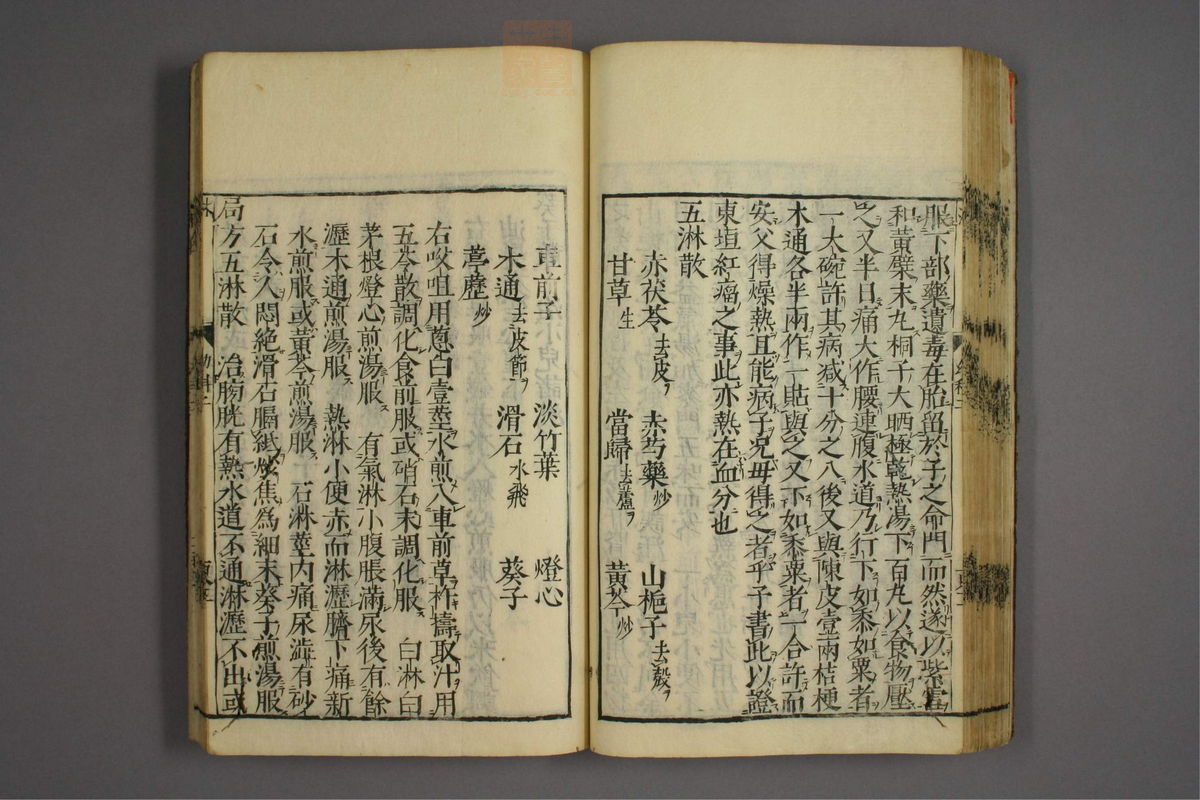 服下部藥遺毒在胎留於子之命門而然遂以紫雪
和黃檗末丸桐子大晒極乾熱湯下百丸以食物壓
之又半日痛大作腰連腹水道乃行下如黍如粟者
一大碗許其病減十分之八後又與陳皮壹兩桔梗
木通各半兩作一貼與之又下如黍粟者一合許而
安父得燥熱且能病子况毋得之者乎予書此以證
東垣紅瘤之事此亦熱在血分也
五淋散
赤茯苓去皮 赤芍藥炒 山梔子去殼
甘草生 當歸去蘆 黃芩炒
車前子 淡竹葉 燈心
木通去皮節 滑石水飛 葵子
葶藶炒
右㕮咀用蔥白壹莖水煎入車前草杵擣取汁用
五苓散調化食前服或硝石末調化服 白淋白
茅根燈心煎湯服 有氣淋小腹脹滿尿後有餘
瀝木通煎湯服 熱淋小便赤而淋瀝臍下痛新
水煎服或黃芩煎湯服 石淋莖內痛尿澁有砂
石令人悶絕滑石膈紙炒焦爲細末葵子煎湯服
局方五淋散 治膀胱有熱水道不通淋瀝不出或